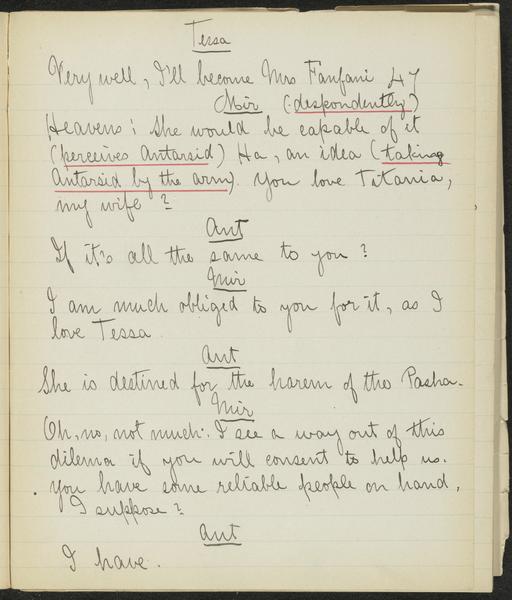 Tessa
Very well, I'll become Mrs Fanfani 47
Mir (despondently)
Heavens! She would be capable of it
(perceives Antarsid) Ha, an idea (taking
Antarsid by the arm). You love Titania,
my wife?
Ant
If it's all the same to you?
Mir
I am much obliged to you for it, as I
love Tessa.
Ant
She is destined for the harem of the Pasha.
Mir
Oh, no, not much. I see a way out of this
dilema if you will consent to help us.
You have some reliable people on hand,
I suppose?
Ant
I have.